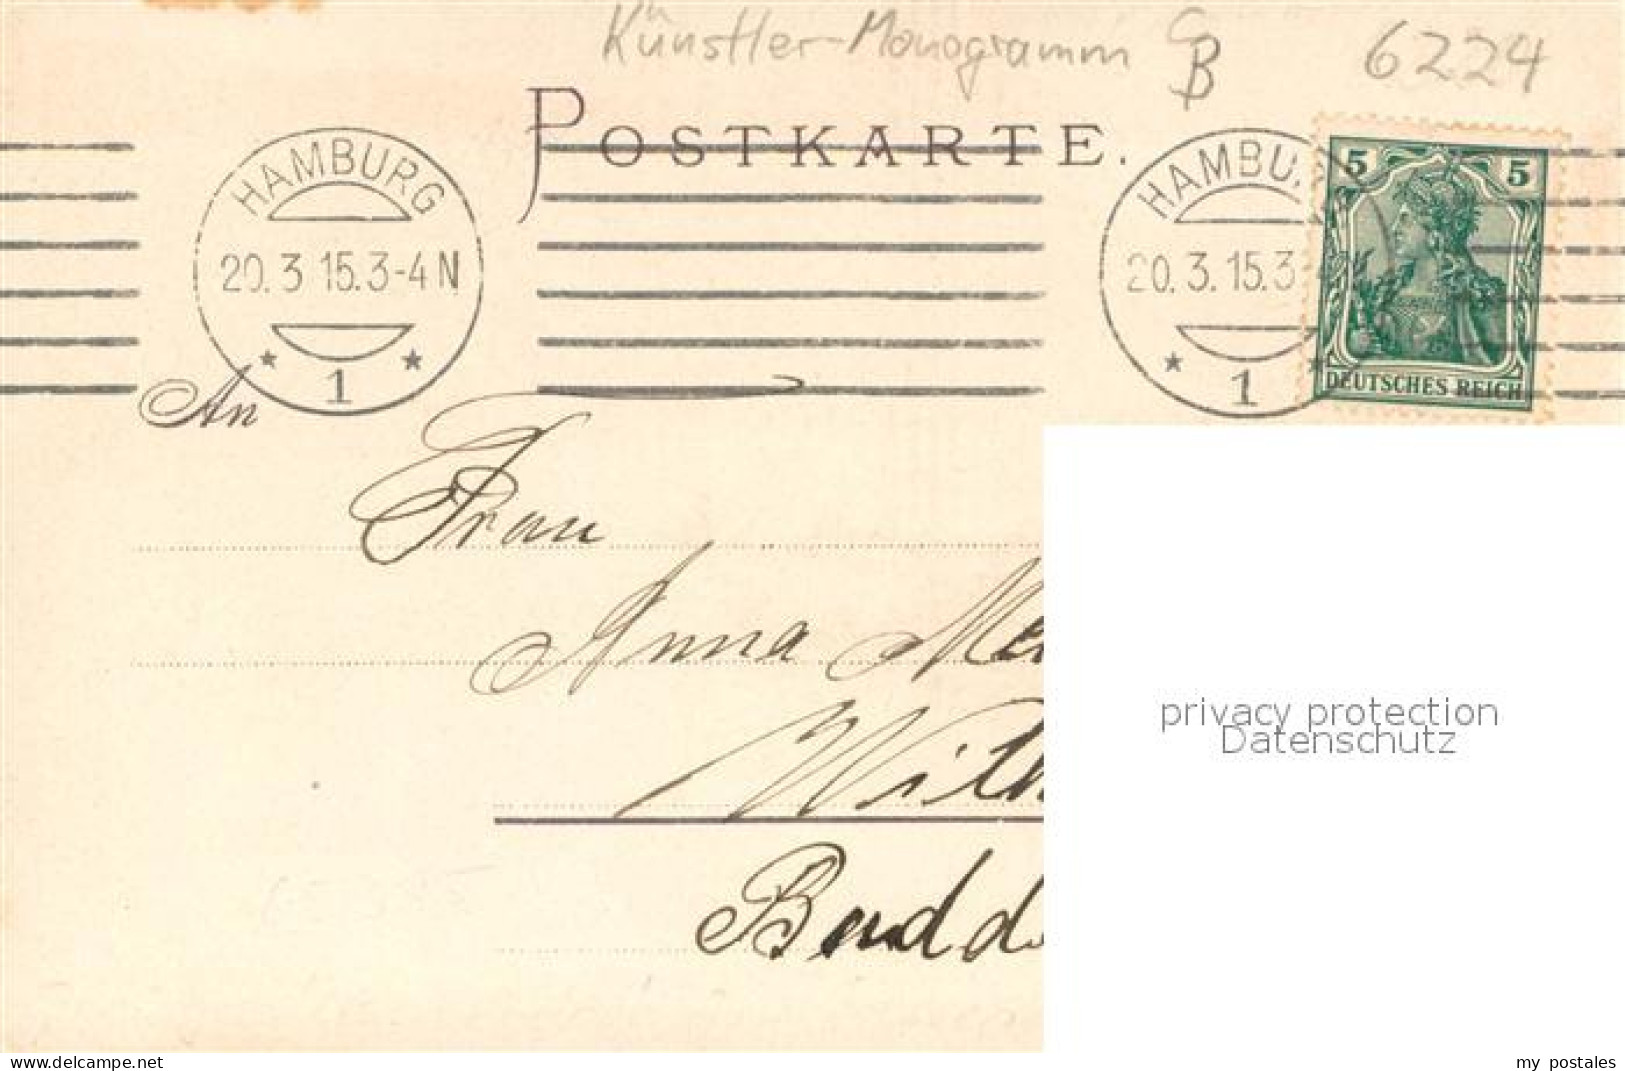 Künstler-Monogramm CB 6224
POSTKARTE.
HAMBURG
20.3.15.3-4 N
* 1 *
HAMBU
20.3.15.3-4
* 1 *
5 5
DEUTSCHES REICH
An
Frau
Anna Me
Wilh
privacy protection
Datenschutz
delcampe.net
my_postales